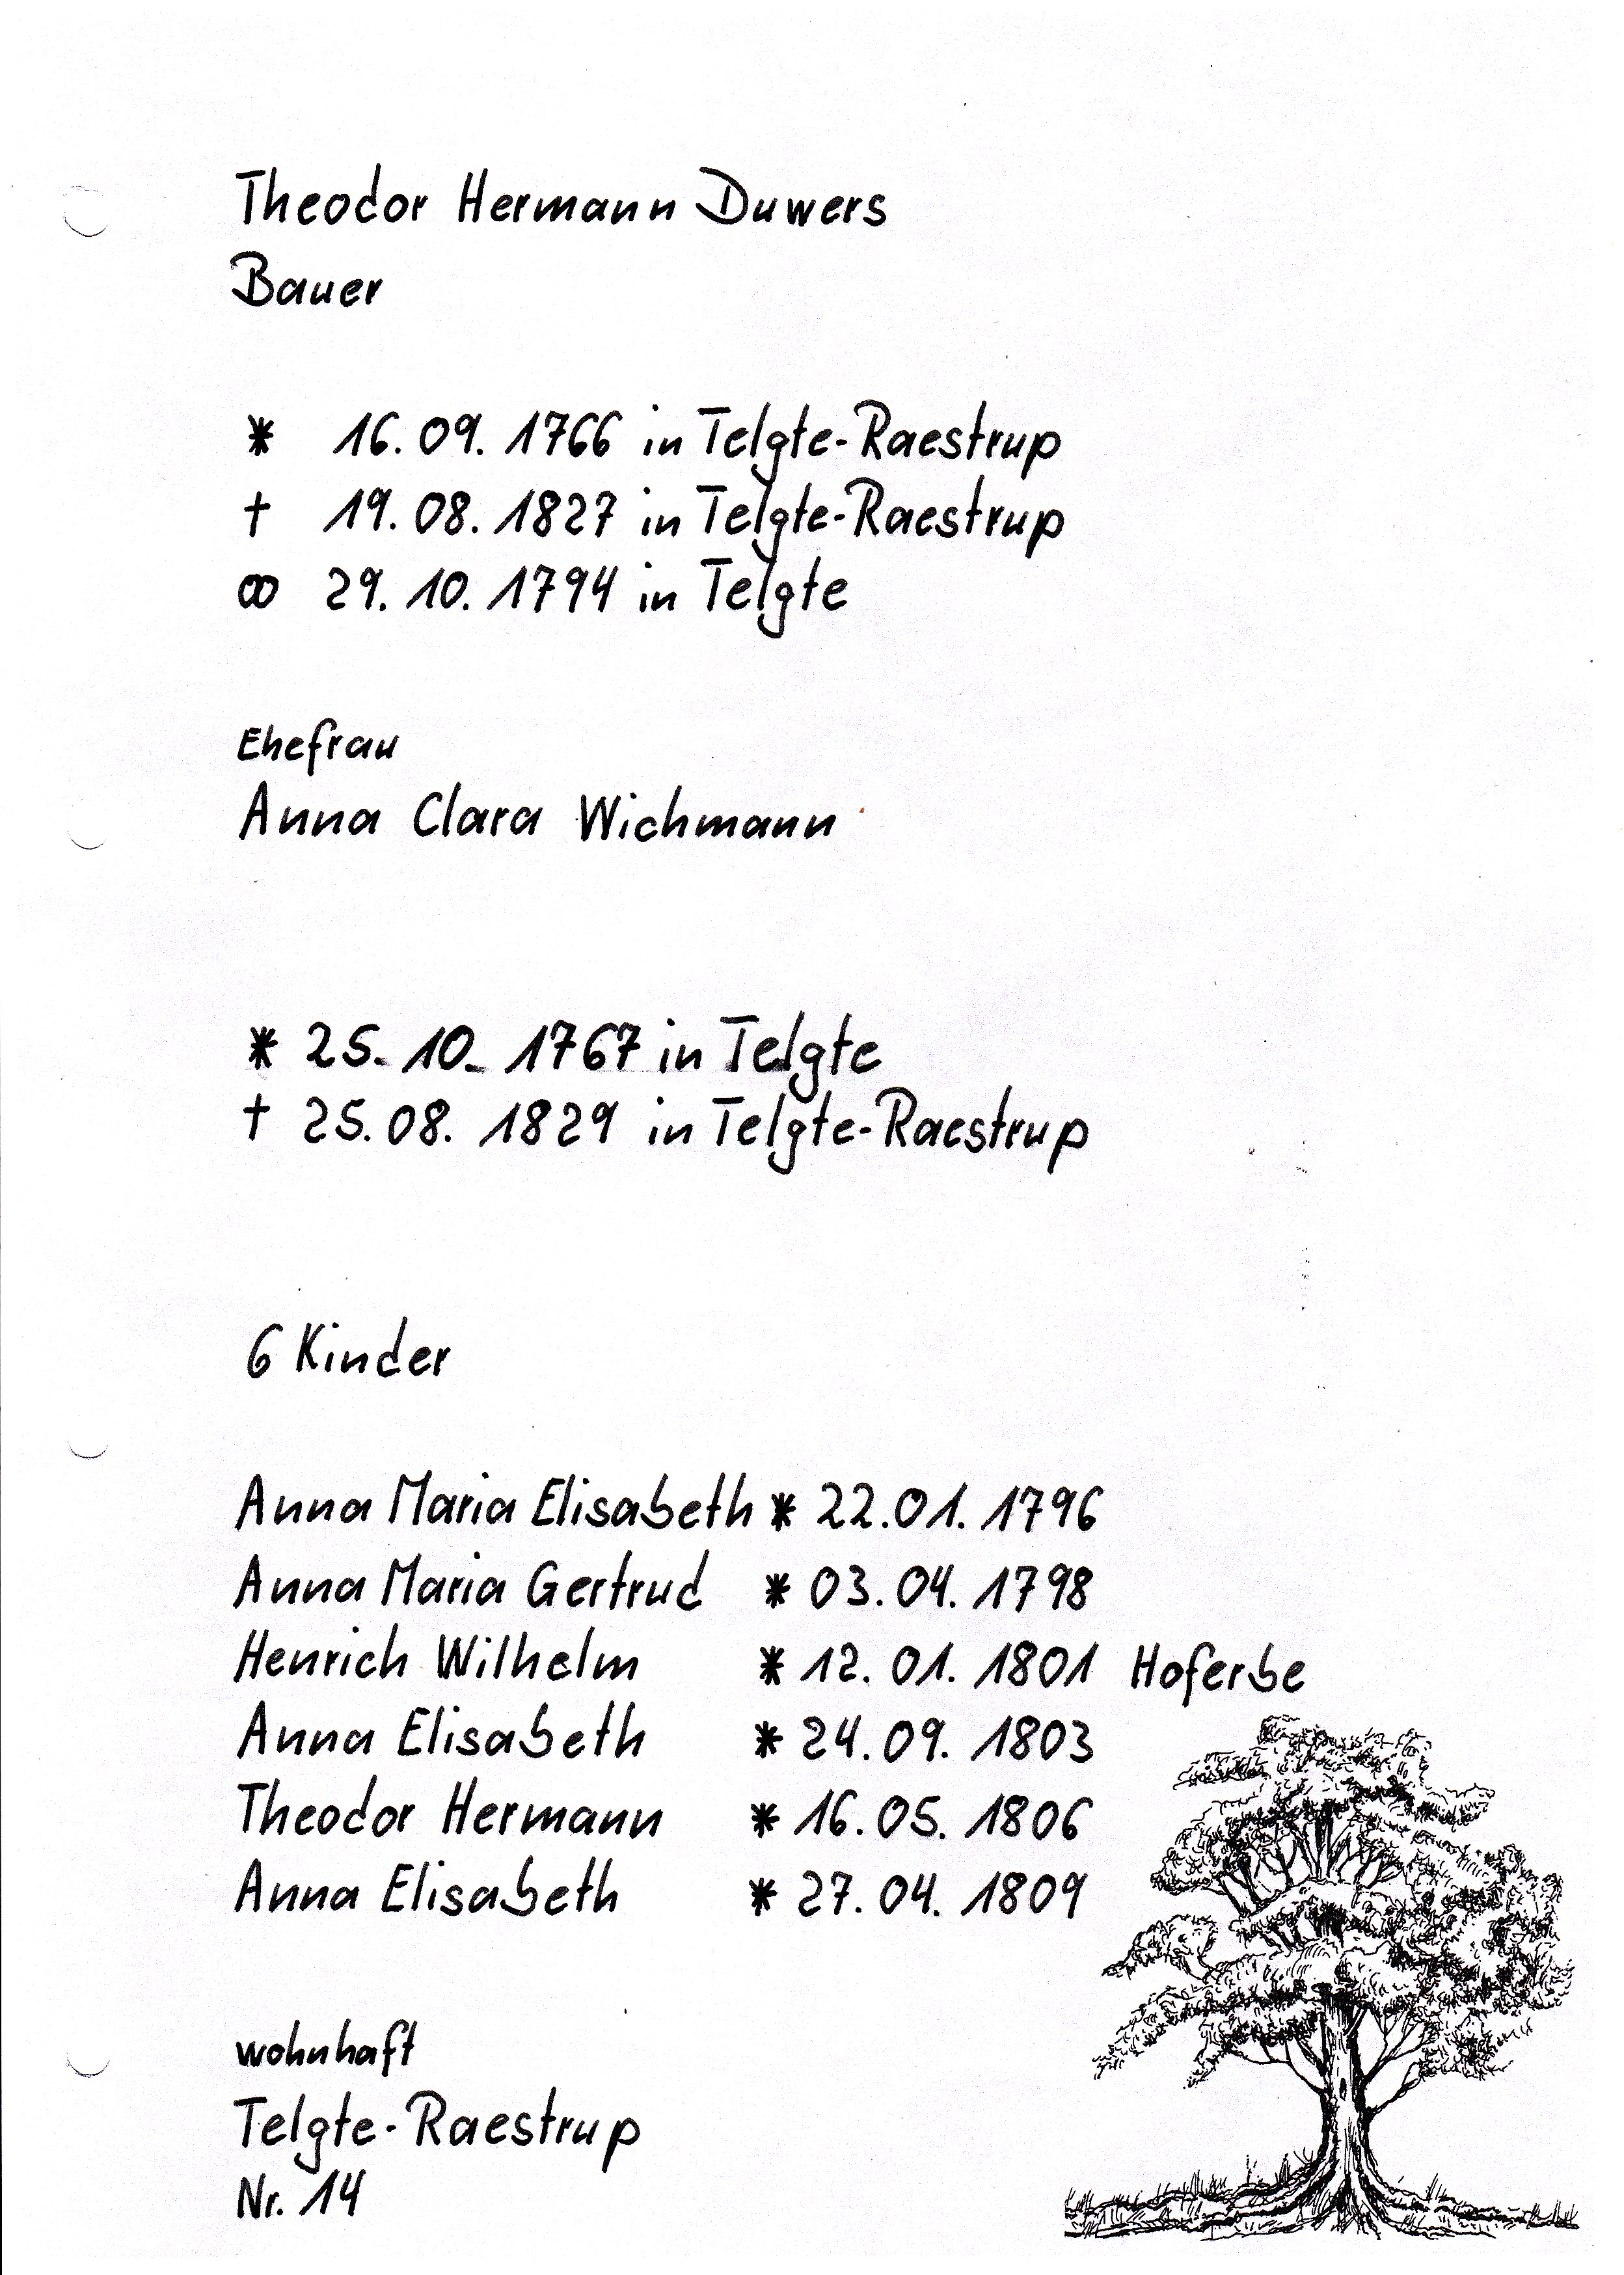 Theodor Hermann Duwers
Bauer
* 16.09.1766 in Telgte-Raestrup
† 19.08.1827 in Telgte-Raestrup
∞ 29.10.1794 in Telgte
Ehefrau
Anna Clara Wichmann
* 25.10.1767 in Telgte
† 25.08.1829 in Telgte-Raestrup
6 Kinder
Anna Maria Elisabeth * 22.01.1796
Anna Maria Gertrud * 03.04.1798
Henrich Wilhelm * 12.01.1801 Hoferbe
Anna Elisabeth * 24.09.1803
Theodor Hermann * 16.05.1806
Anna Elisabeth * 27.04.1809
wohnhaft
Telgte-Raestrup
Nr. 14